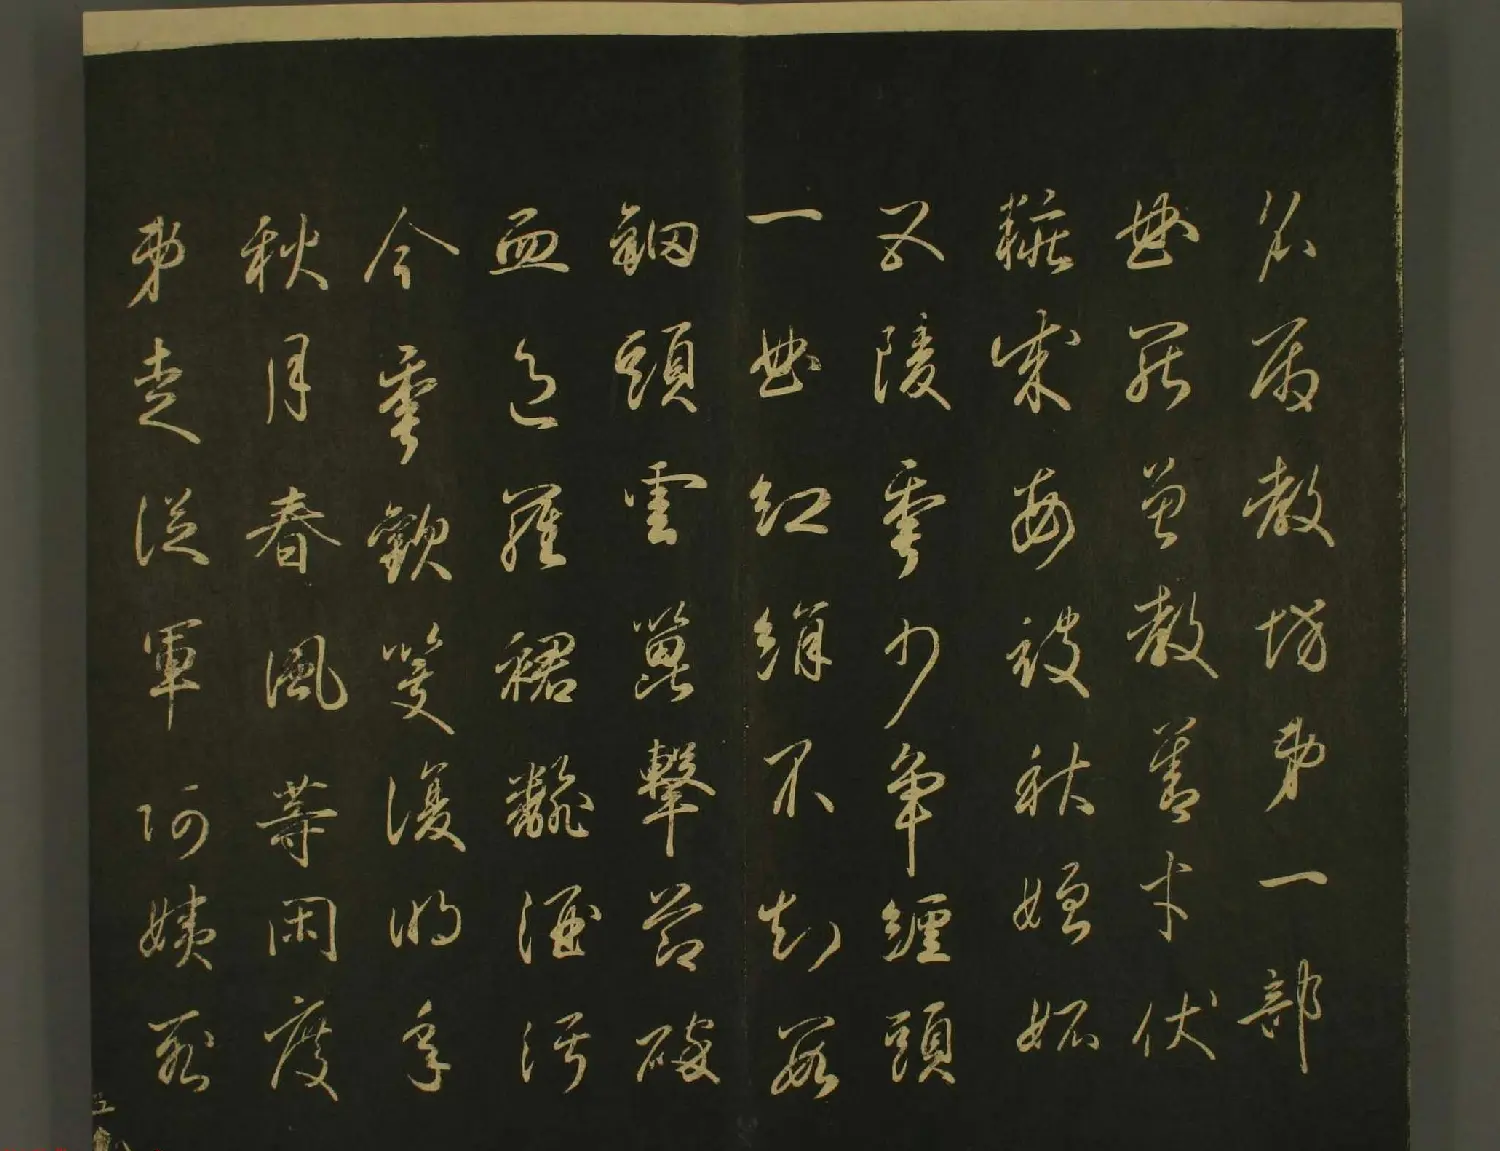 名属教坊第一部
曲罷曽教善才伏
粧成每被秋娘妬
五陵年少争纏頭
一曲紅綃不知數
鈿頭雲篦擊節碎
血色羅裙翻酒污
今年歡笑復明年
秋月春風等閑度
弟走從軍阿姨死